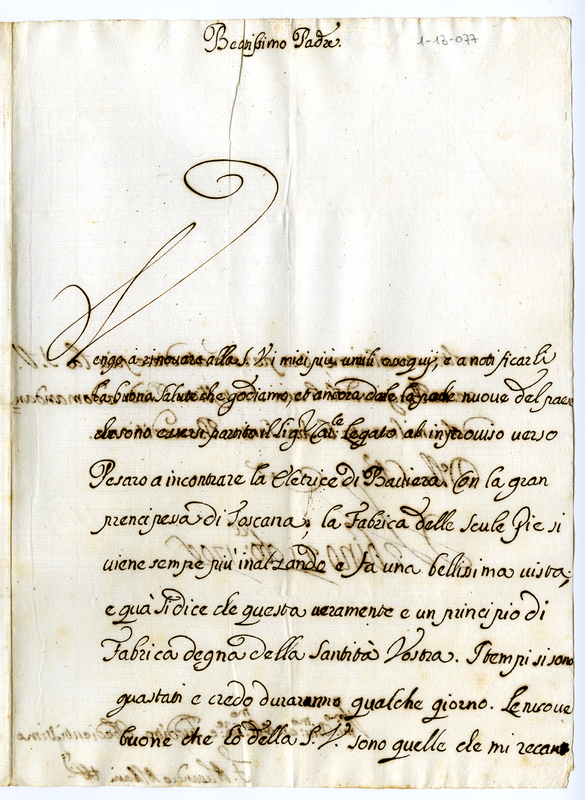 Beatissimo Padre.
1-13-077
Vengo à rinovare alla S. V. i miei più umili ossequij, e a notificarli
la buona salute che godiamo, et ancora darle le nuove del paese
che sono essersi partito il Sig.r Car.le Legato all improviso verso
Pesaro a incontrare la Eletrice di Baviera con la gran
prencipessa di Toscana, la Fabrica delle Scule Pie si
viene sempre più inalzando e fa una bellissima vista;
e quà si dice che questa veramente e un principio di
Fabrica degna della Santità Vostra. I tempi si sono
guastati e credo duraranno qualche giorno. Le nuove
buone che ho della S. V. sono quelle che mi recano